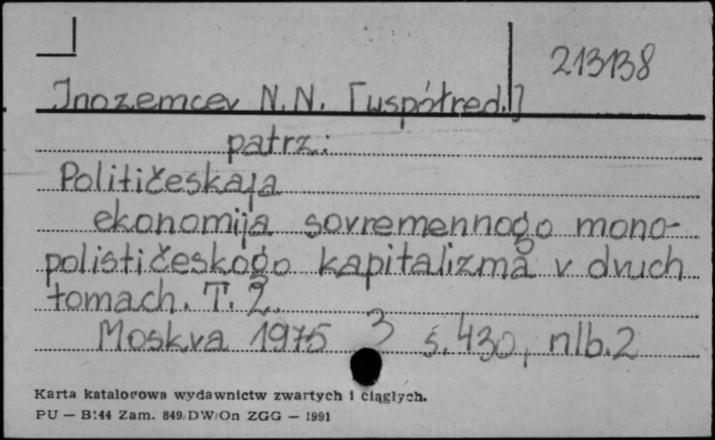 213138
Inozemcev N.N. [współred.]
patrz:
Političeskaja
ekonomija sovremennogo mono-
polističeskogo kapitalizma v dvuch
tomach. T. 2.
Moskva 1975 3 s. 430, nlb. 2
Karta katalogowa wydawnictw zwartych i ciągłych.
PU — B144 Zam. 849/DW/On ZGG — 1991